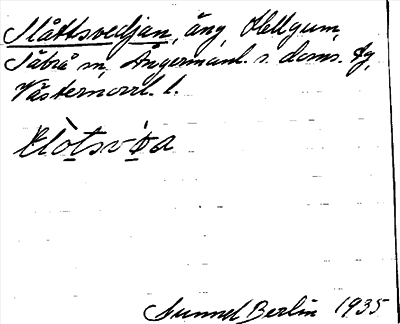 Slåttsvedjan, äng, Hellgum,
Säbrå sn, Ångermanl. s. doms. tg,
Västernorrl. l.
Gunnel Berlin 1935